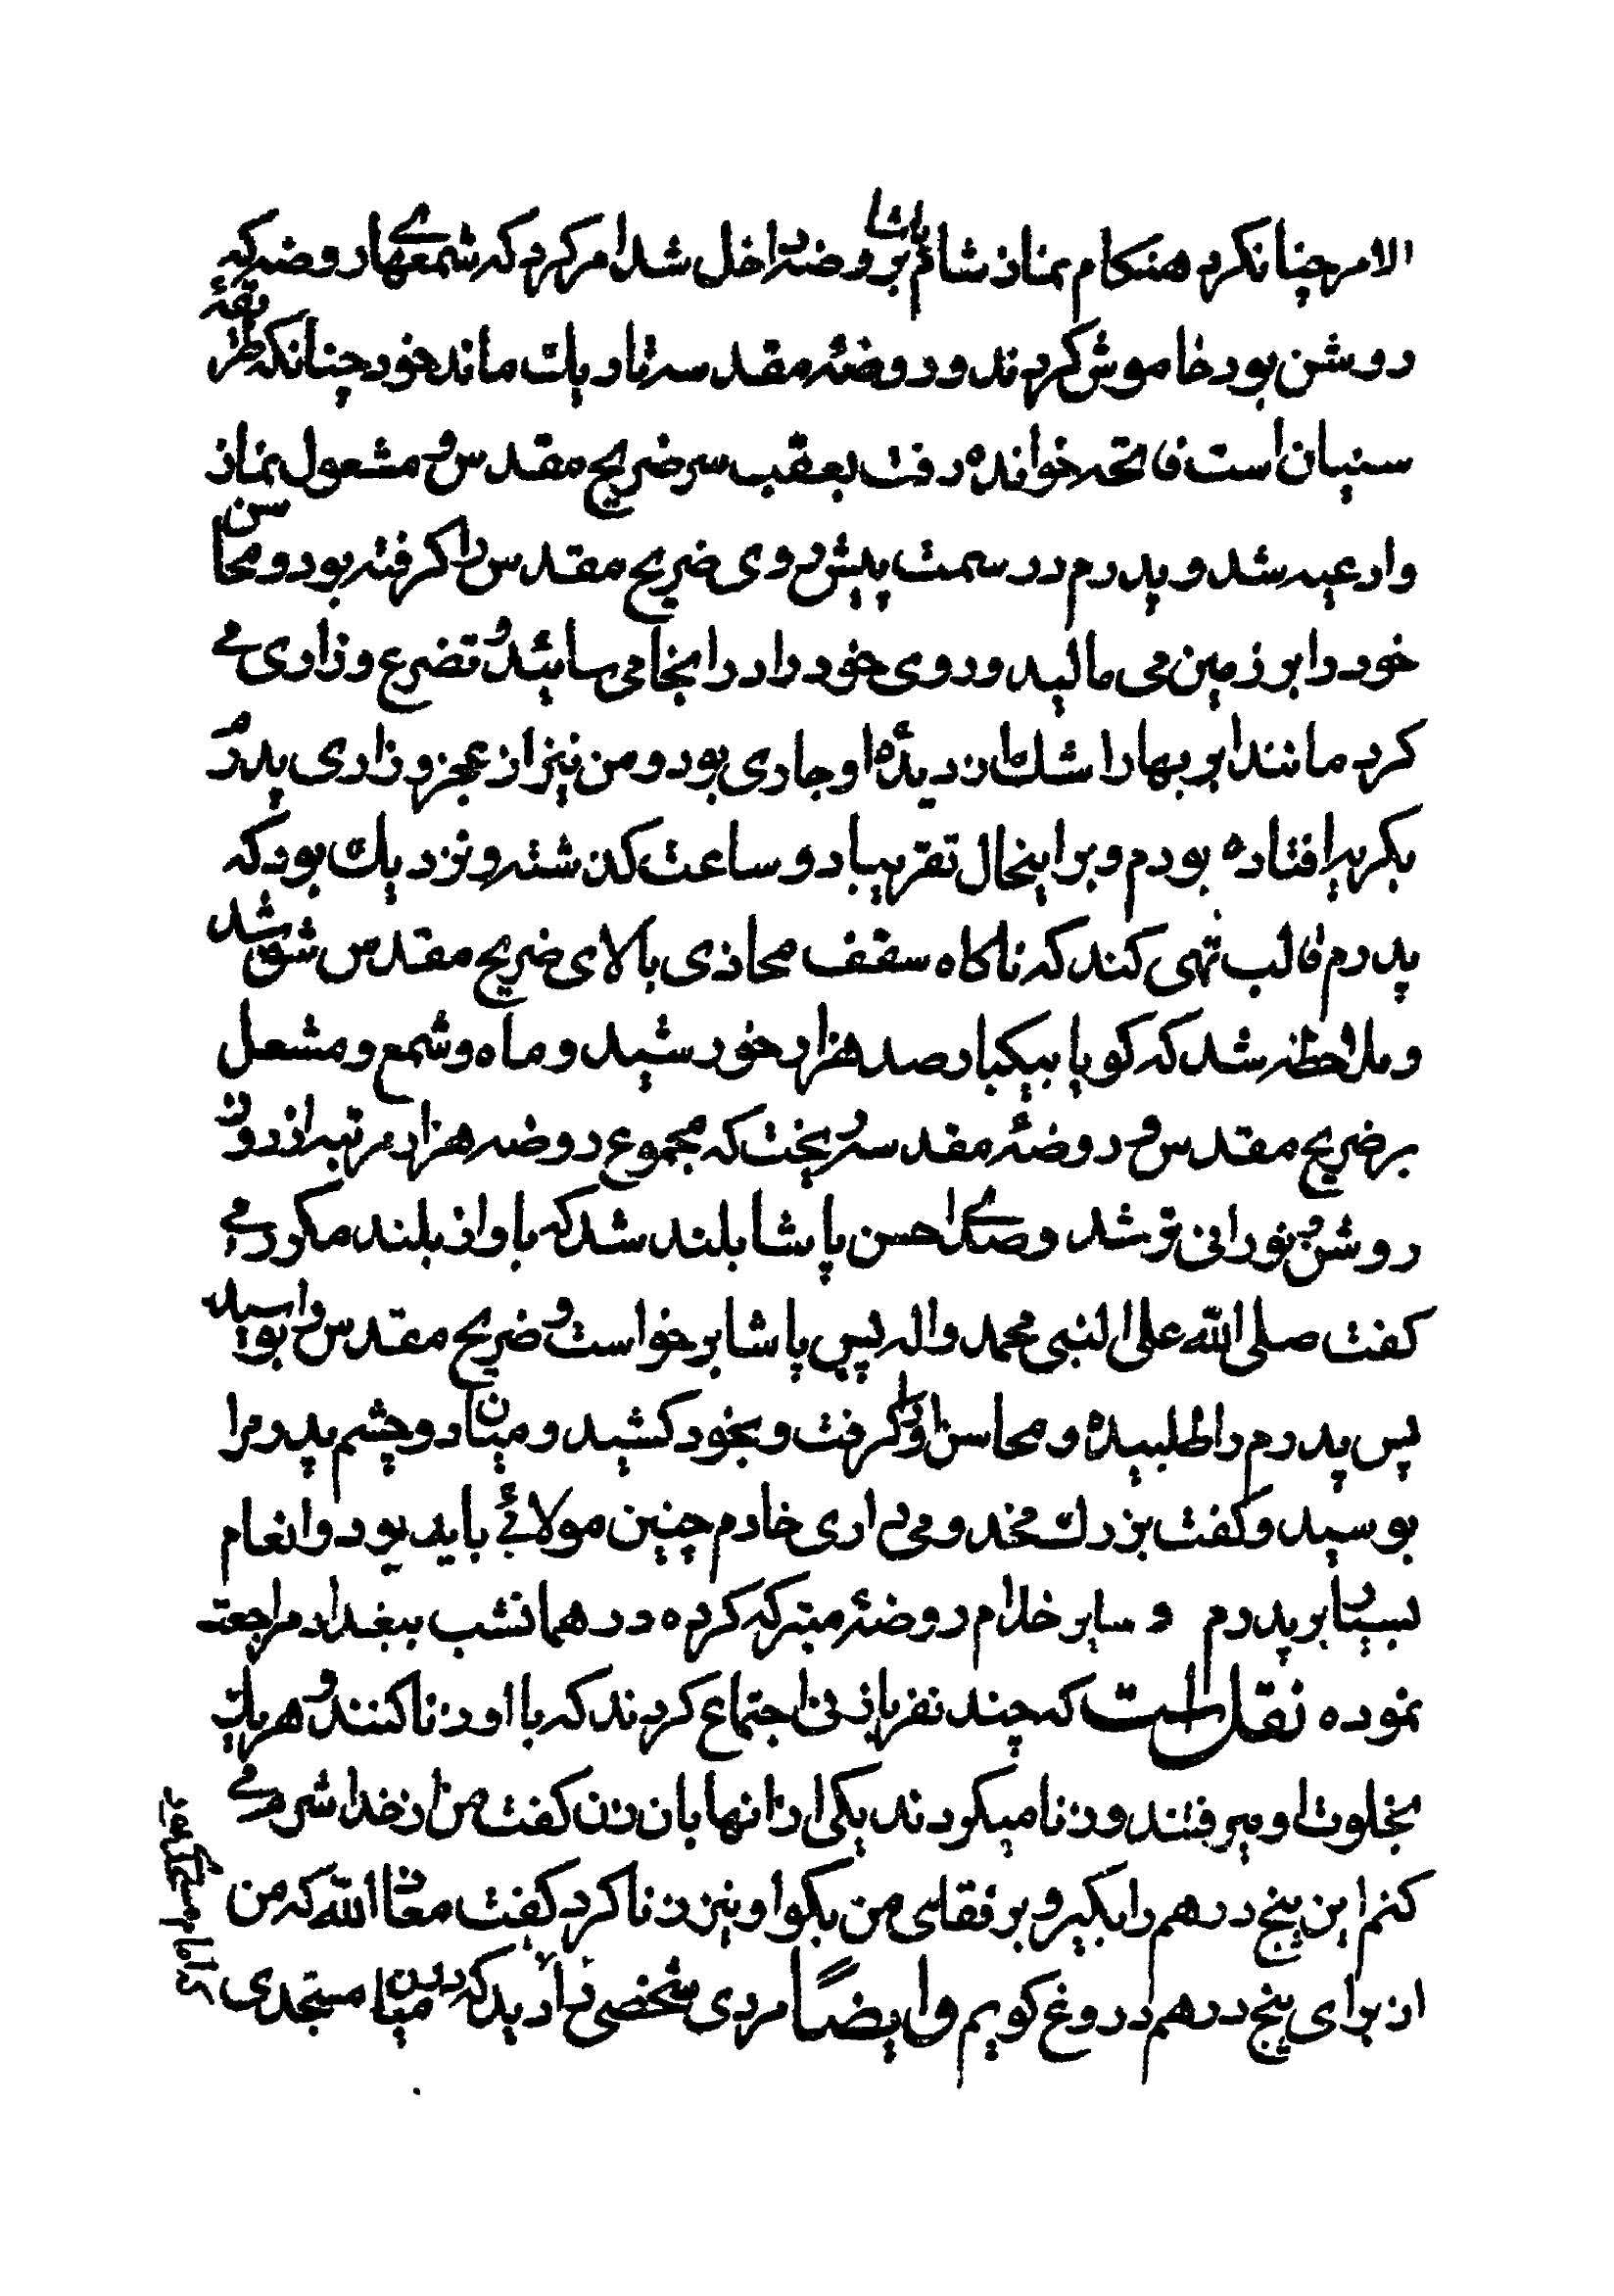 الامر چنان کرد هنکام نماز شام پاشا بروضه داخل شد امر کرد که شمعهای روضه که
روشن بود خاموش کردند و روضهٔ مقدسه تاریک ماند خود چنانکه طریقهٔ
سنیان است فاتحه خوانده رفت بعقب سر ضریح مقدس و مشعول نماز
وادعیه شد و پدرم در سمت پیش روی ضریح مقدس را کرفته بود و محاسن
خود را بر زمین می مالید و روی خود را در انجا می سائید و تضرع و زاری می
کرد مانند ابر بهار اشک از دیدهٔ او جاری بود و من نیز از عجز و زاری پدرم
بکریه افتاده بودم و بر اینحال تقریبا دو ساعت کذشته و نزدیک بود که
پدرم قالب تهی کند که ناکاه سقف محاذی بالای ضریح مقدس شق شد
و ملاحظه شد که کویا بیکبار صد هزار خورشید و ماه و شمع و مشعل
بر ضریح مقدس و روضهٔ مقدسه ریخت که مجموع روضه هزار مرتبه از روز
روشن نورانی تر شد و صدای حسن پاشا بلند شد که باواز بلند مکرر می
کفت صلی الله علی النبی محمد واله پس پاشا برخواست و ضریح مقدس را بوسید
پس پدرم را طلبیده و محاسن او را کرفت و بخود کشید و میان دو چشم پدرمرا
بوسید و کفت بزرک مخدومی داری خادم چنین مولائی باید بود و انعام
بسیار بر پدرم و سایر خدام روضهٔ متبرکه کرده در همانشب ببغداد مراجعت
نموده نقل است که چند نفر با زنی اجتماع کردند که با او زنا کنند و هر یک
بخلوت او میرفتند و زنا میکردند یکی از انها بان زن کفت من از خدا شرم می
کنم این پنج درهم را بکیر و بر فقای من بکو او نیز زنا کرد کفت معاذ الله که من
از برای پنج درهم دروغ کویم وایضاً مردی شخصی را دید که در میان مسجدی